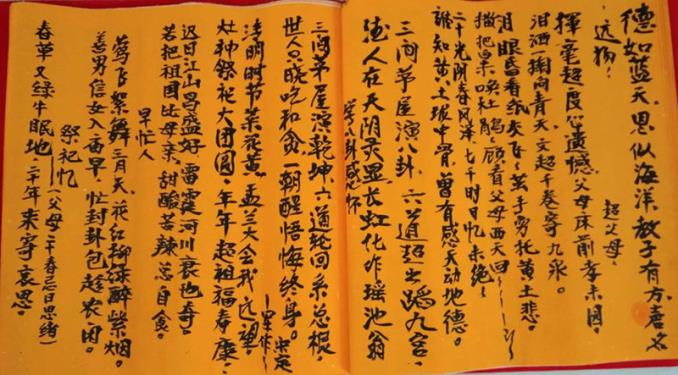 德如蓝天,恩似海洋,教子有方,喜名
远扬!
超父母
挥毫超度心遗憾,父母床前孝未周。
泪洒掬向青天,文超千卷寄九泉。
泪眼昏看纸灰飞,茧手劳托黄土悲。
把果唤杜鹃,顾看父母西天回
二十光阴春风泽,七千时日忆未绝,
谁知黄土坡中骨,曾有感天动地德。
三间茅屋演八卦,六道超出蹈九宫,
人在天阴灵显,长虹化作瑶池翁
学卦感怀
三间茅屋演乾坤,六道轮回系总根。
世人只晓吃和食,一朝醒悟悔终身。
清明时节菜花黄,盂兰大会我远望。
灶神祭祀大团圆,年年超祖福寿康。
迟日江山昌盛好,雷霆河川哀也奇。
若把祖国比母亲,甜酸苦辣总自食。
早忙人
莺飞絮舞三月天,花红柳绿醉紫烟。
善男信女入西早,忙封卦包趁农困。
祭祀忆(父母二十春忌日思绪)
春草又绿牛眠地,二十年来寄哀思。